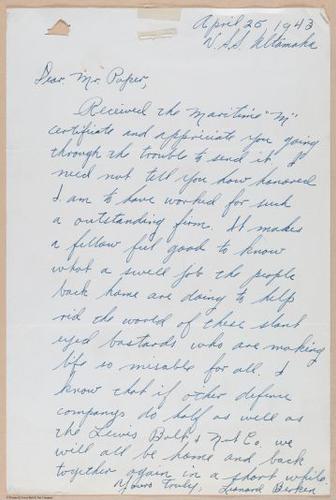 April 25, 1943
U.S.S. Altamaha
Dear Mr. Roper,
Received the Maritime "M"
certificate and appriciate you going
through the trouble to send it. I
need not tell you how honored
I am to have worked for such
a outstanding firm. It makes
a fellow feel good to know
what a swell job the people
back home are doing to help
rid the world of these slant
eyed bastards who are making
life so misable for all. I
know that if other defense
companys do half as well as
the Lewis Bolt & Nut Co. we
will all be home and back
together again in a short while.
Yours truly, Leonard